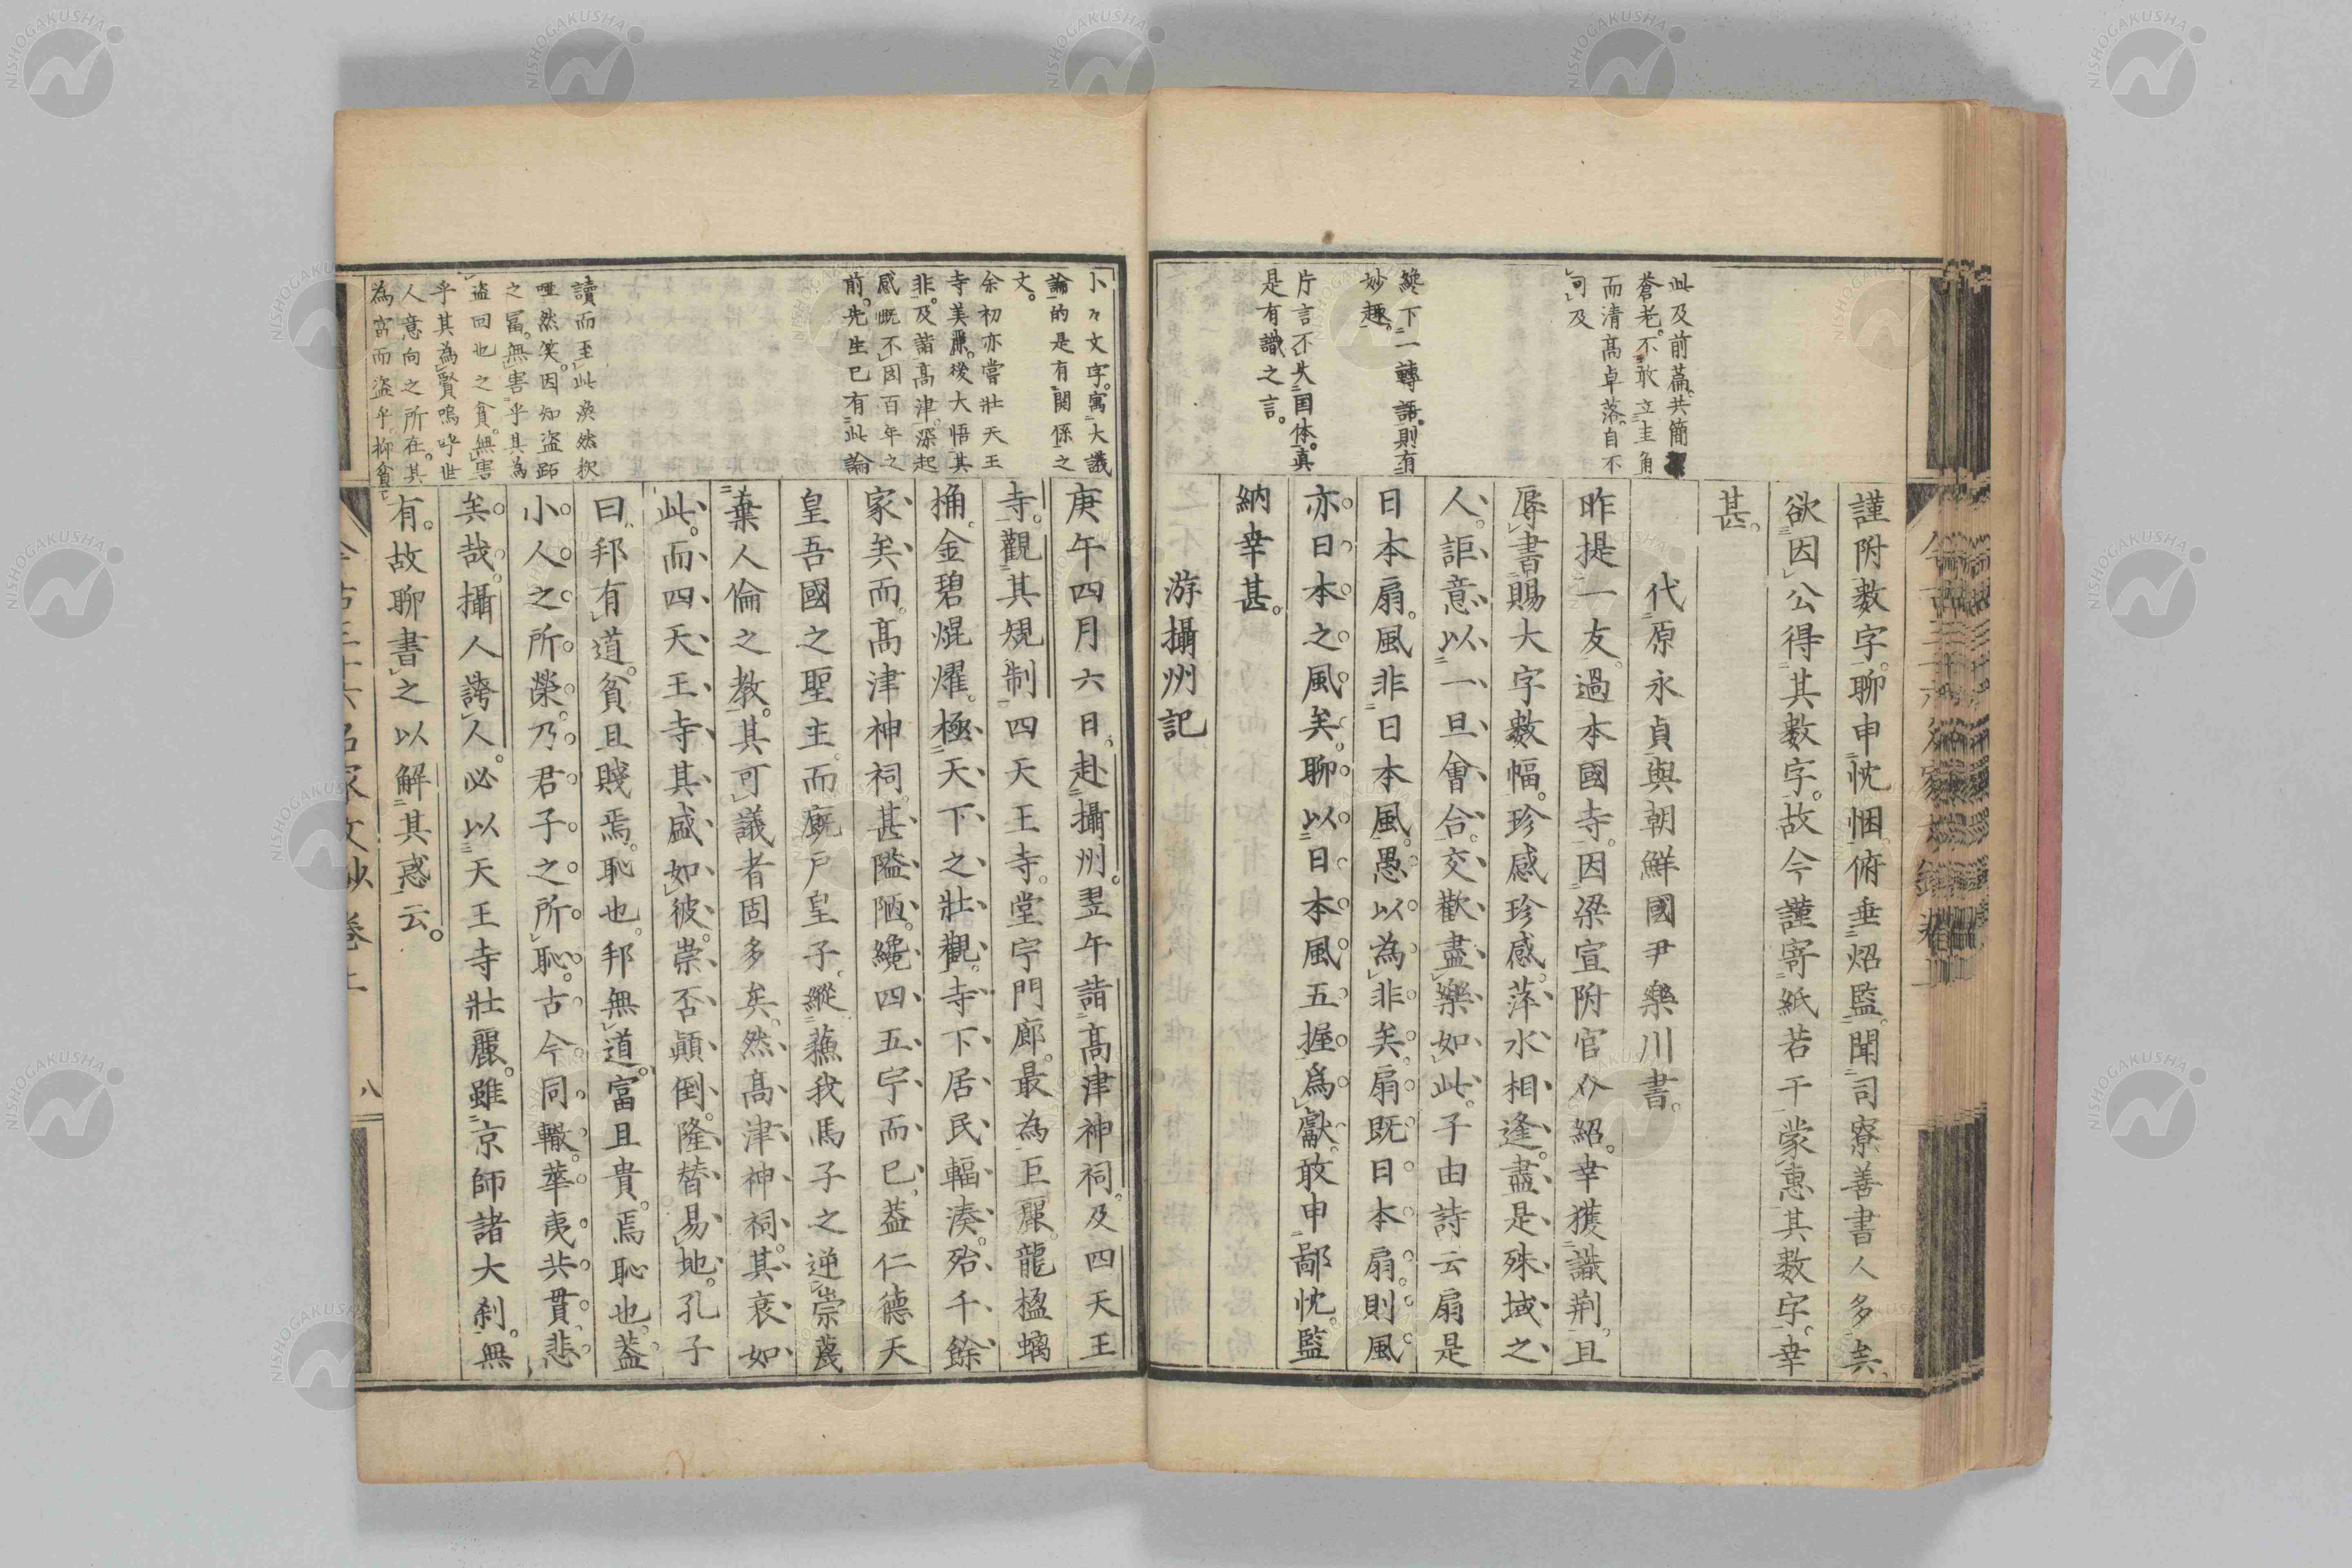 謹附數字。聊申忱悃。俯垂炤監。聞司寮善書人多矣。
欲因公得其數字。故今謹寄紙若干蒙惠其數字。幸
甚。
代原永貞與朝鮮國尹樂川書。
昨提一友。過本國寺。因梁宣附官介紹。幸獲識荊。且
辱書賜大字數幅。珍感珍感。萍水相逢。盡是殊域之
人。詎意以一旦會合。交歡盡樂如此。子由詩云扇是
日本扇。風非日本風。愚以為非矣。扇既日本扇。則風
亦日本之風矣。聊以日本風五握為獻。敢申鄙忱。監
納幸甚。
游攝州記
此及前篇。共簡
蒼老。不敢立圭角
而清高卓落。自不
可及
纔下一轉語。則有
妙趣。
片言不失国体。真
是有識之言。
庚午四月六日。赴攝州。翌午詣高津神祠。及四天王
寺。觀其規制。四天王寺。堂宇門廊。最為巨麗。龍楹螭
桷。金碧焜燿。極天下之壯觀。寺下居民輻湊。殆千餘
家矣。而高津神祠。甚隘陋。纔四五宇而已。蓋仁德天
皇吾國之聖主。而廐戶皇子。縱蘓我馬子之逆。崇蔑
棄人倫之教。其可議者固多矣。然高津神祠。其衰如
此。而四天王寺其盛如彼。崇否顛倒。隆替易地。孔子
曰。邦有道。貧且賤焉。恥也。邦無道。富且貴。焉恥也。蓋
小人之所榮。乃君子之所恥。古今同轍。華夷共貫。悲
矣哉。攝人誇人。必以天王寺壯麗。雖京師諸大剎。無
有。故聊書之以解其惑云。
小々文字。寓大議
論。的是有関係之
文。
余初亦嘗壮天王
寺美麗。後大悟其
非。及詣高津。深起
感慨。不因百年之
前。先生已有此論
讀而至此。渙然抃
唖然笑。因知盗跖
之冨。無害乎其為
盗。回也之貧。無害
乎其為賢。嗚呼世
人意向之所在。其
為富而盗乎。抑貧
八